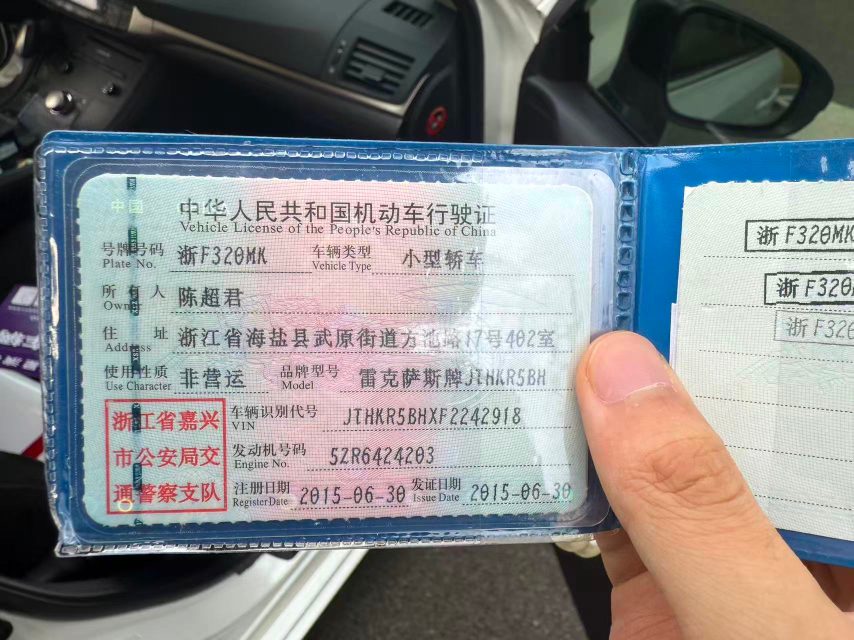 中国
中华人民共和国机动车行驶证
Vehicle License of the People's Republic of China
号牌号码 浙F320MK 车辆类型 小型轿车
Plate No. Vehicle Type
所有人 陈超君
Owner
住址 浙江省海盐县武原街道方池路17号402室
Address
使用性质 非营运 品牌型号 雷克萨斯牌JTHKR5BH
Use Character Model
浙江省嘉兴
市公安局交
通警察支队
车辆识别代号 JTHKR5BHXF2242918
VIN
发动机号码 5ZR6424203
Engine No.
注册日期 2015-06-30 发证日期 2015-06-30
Register Date Issue Date
浙F320MK
浙F320
浙F320